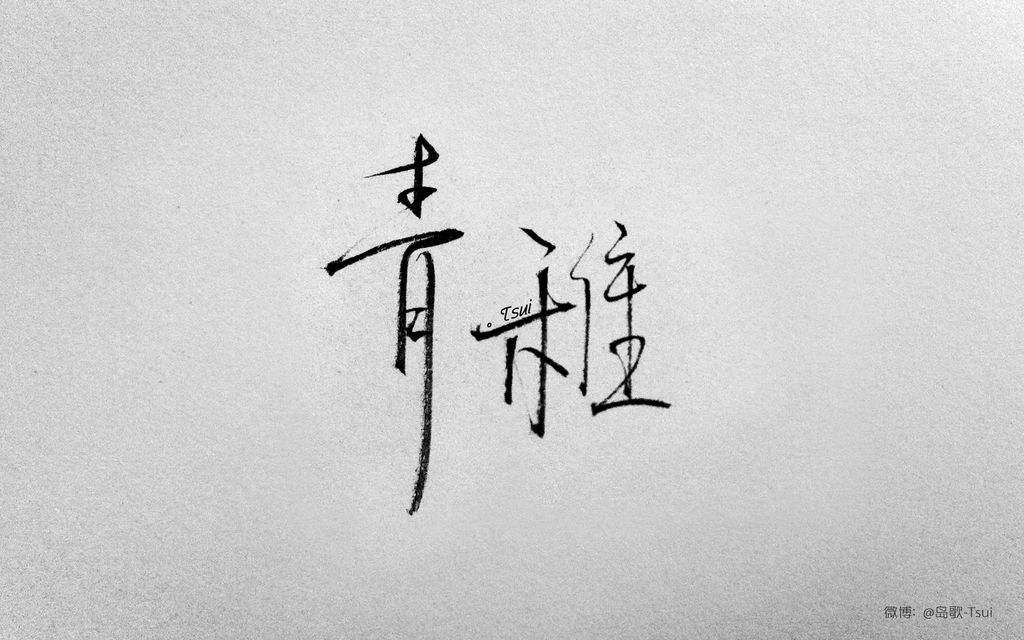 青稚
。Tsui
微博: @岛歌-Tsui